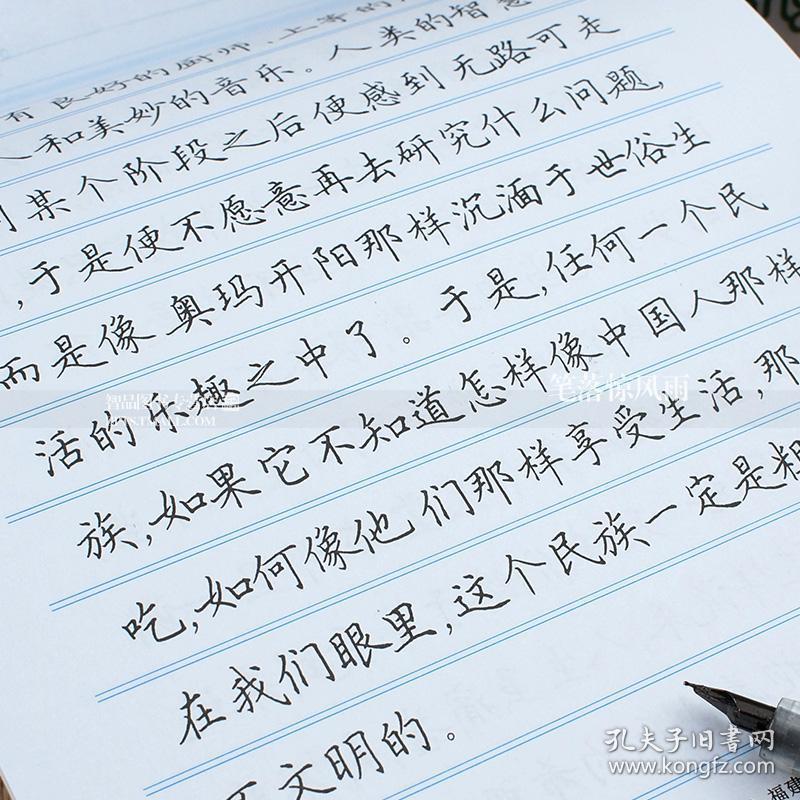 有良好的厨师、上等的
人和美妙的音乐。人类的智慧
某个阶段之后便感到无路可走
,于是便不愿意再去研究什么问题,
而是像奥玛开阳那样沉湎于世俗生
活的乐趣之中了。于是,任何一个民
族,如果它不知道怎样像中国人那样
吃,如何像他们那样享受生活,那
在我们眼里,这个民族一定是粗
文明的。
笔落惊风雨
孔夫子旧书网
www.kongfz.com
福建